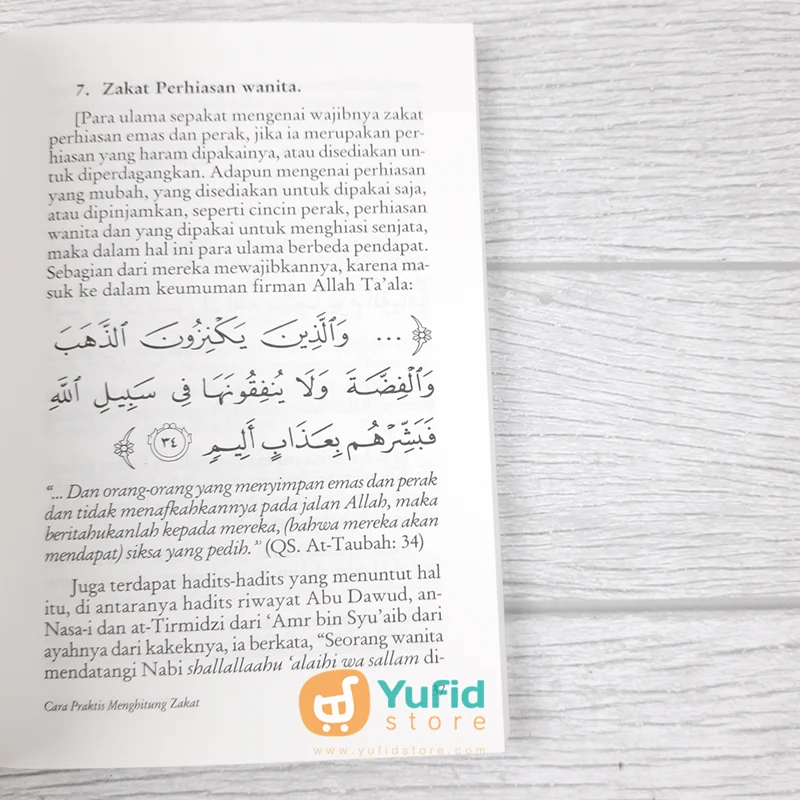 7. Zakat Perhiasan wanita.
[Para ulama sepakat mengenai wajibnya zakat
perhiasan emas dan perak, jika ia merupakan per-
hiasan yang haram dipakainya, atau disediakan un-
tuk diperdagangkan. Adapun mengenai perhiasan
yang mubah, yang disediakan untuk dipakai saja,
atau dipinjamkan, seperti cincin perak, perhiasan
wanita dan yang dipakai untuk menghiasi senjata,
maka dalam hal ini para ulama berbeda pendapat.
Sebagian dari mereka mewajibkannya, karena ma-
suk ke dalam keumuman firman Allah Ta'ala:
﴿ ... وَٱلَّذِينَ يَكْنِزُونَ ٱلذَّهَبَ
وَٱلْفِضَّةَ وَلَا يُنفِقُونَهَا فِى سَبِيلِ ٱللَّهِ
فَبَشِّرْهُم بِعَذَابٍ أَلِيمٍ ٣٤ ﴾
"... Dan orang-orang yang menyimpan emas dan perak
dan tidak menafkahkannya pada jalan Allah, maka
beritahukanlah kepada mereka, (bahwa mereka akan
mendapat) siksa yang pedih." (QS. At-Taubah: 34)
Juga terdapat hadits-hadits yang menuntut hal
itu, di antaranya hadits riwayat Abu Dawud, an-
Nasa-i dan at-Tirmidzi dari 'Amr bin Syu'aib dari
ayahnya dari kakeknya, ia berkata, "Seorang wanita
mendatangi Nabi shallallaahu 'alaihi wa sallam di-
Cara Praktis Menghitung Zakat
Yufid
store
www.yufidstore.com